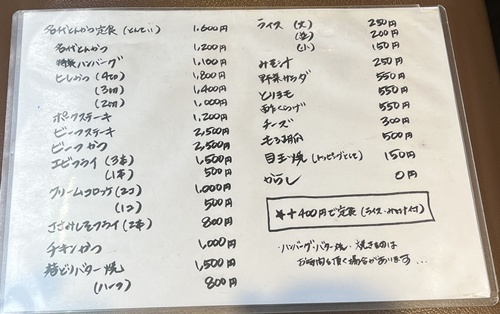 名代とんかつ定食 (とんてい) 1,600円
名代とんかつ 1,200円
特製ハンバーグ 1,100円
ヒレかつ (4コ) 1,800円
(3コ) 1,400円
(2コ) 1,000円
ポークステーキ 1,200円
ビーフステーキ 2,500円
ビーフかつ 2,500円
エビフライ (3本) 1,500円
(1本) 500円
クリームコロッケ (2コ) 1,000円
(1コ) 500円
ささみしそフライ (2本) 800円
チキンかつ 1,000円
若どりバター焼 1,500円
(ハーフ) 800円
ライス (大) 250円
(中) 200円
(小) 150円
みそ汁 250円
野菜サラダ 550円
とりもも 550円
550円
チーズ 300円
もろきゅう 500円
目玉焼 (トッピングとして) 150円
からし 0円
*+400円で定食 (ライス・みそ汁付)
・ハンバーグ・バター焼・焼きものは
お時間を頂く場合があります...